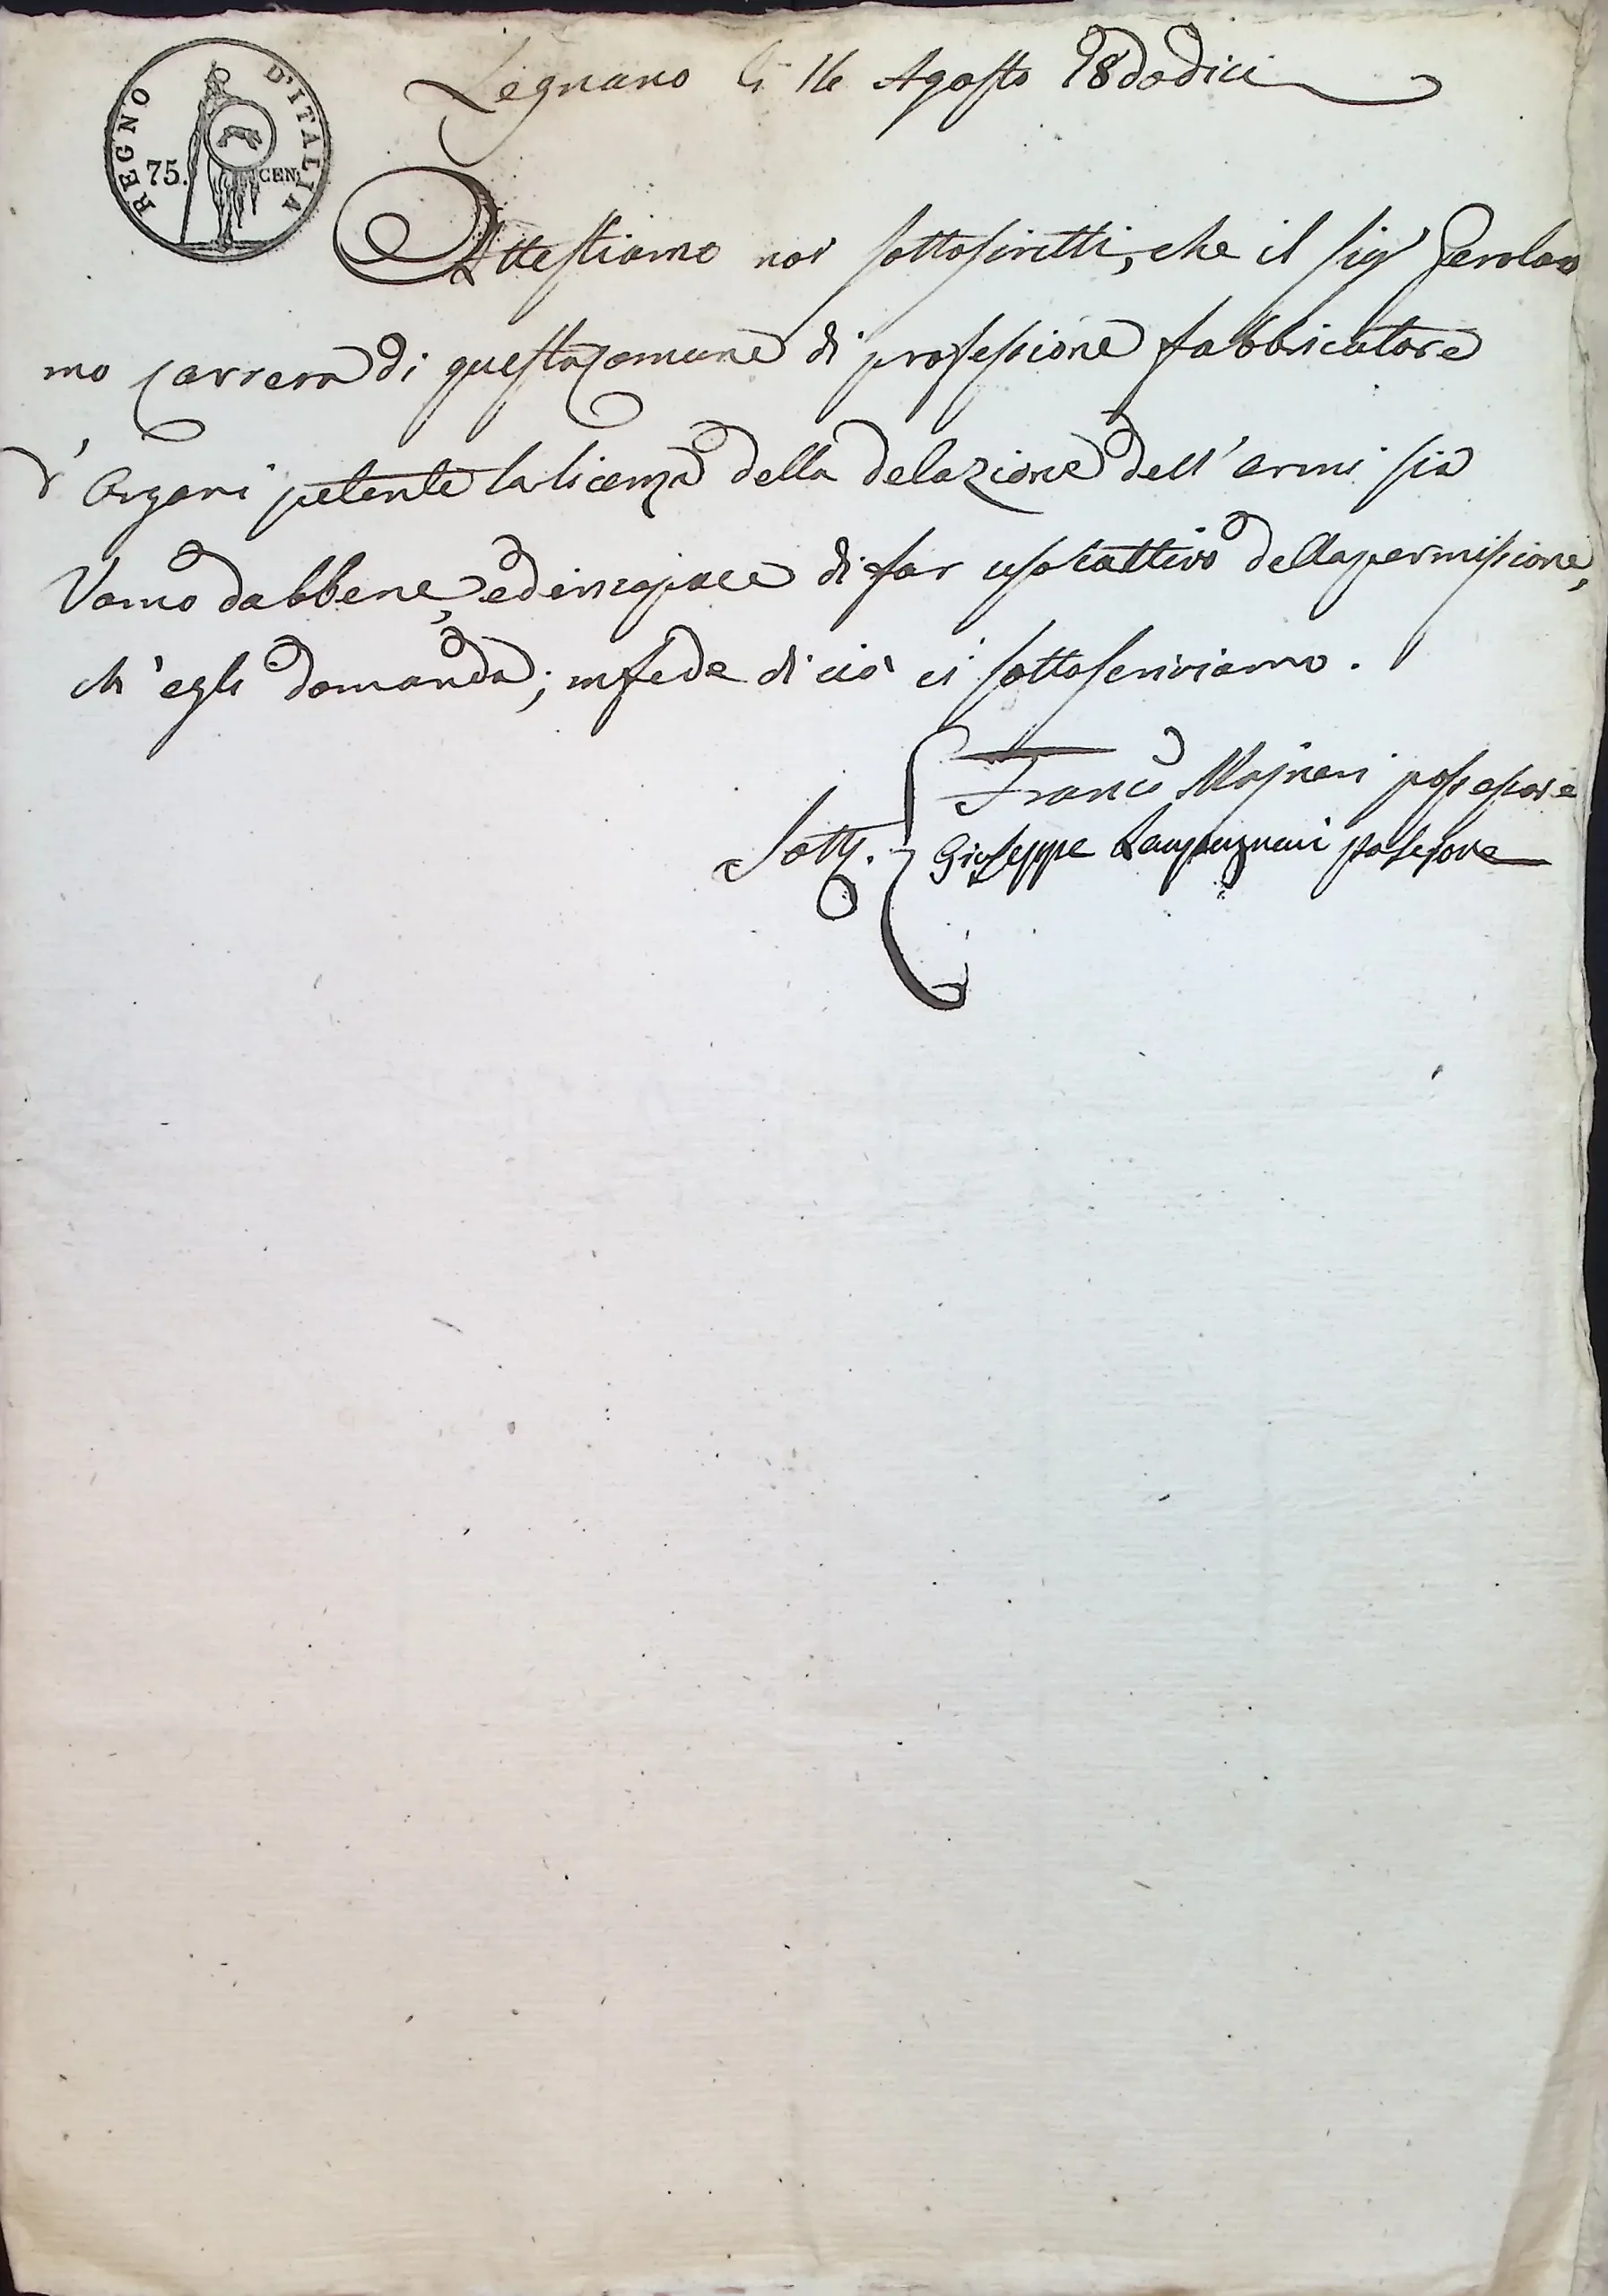 REGNO D'ITALIA
75. CEN.
Legnano li 16 Agosto 18dodici
Attestiamo noi sottoscritti, che il sig.r Gerola
mo Carrera di questa Comune di professione fabbricatore
d'Organi petente la licenza della delazione dell'armi sia
Uomo dabbene, ed incapace di far uso cattivo della permissione,
ch'egli domanda; in fede di ciò ci sottoscriviamo.
Franco Majneri possessore
Sott.
Giuseppe Lampugnani possessore